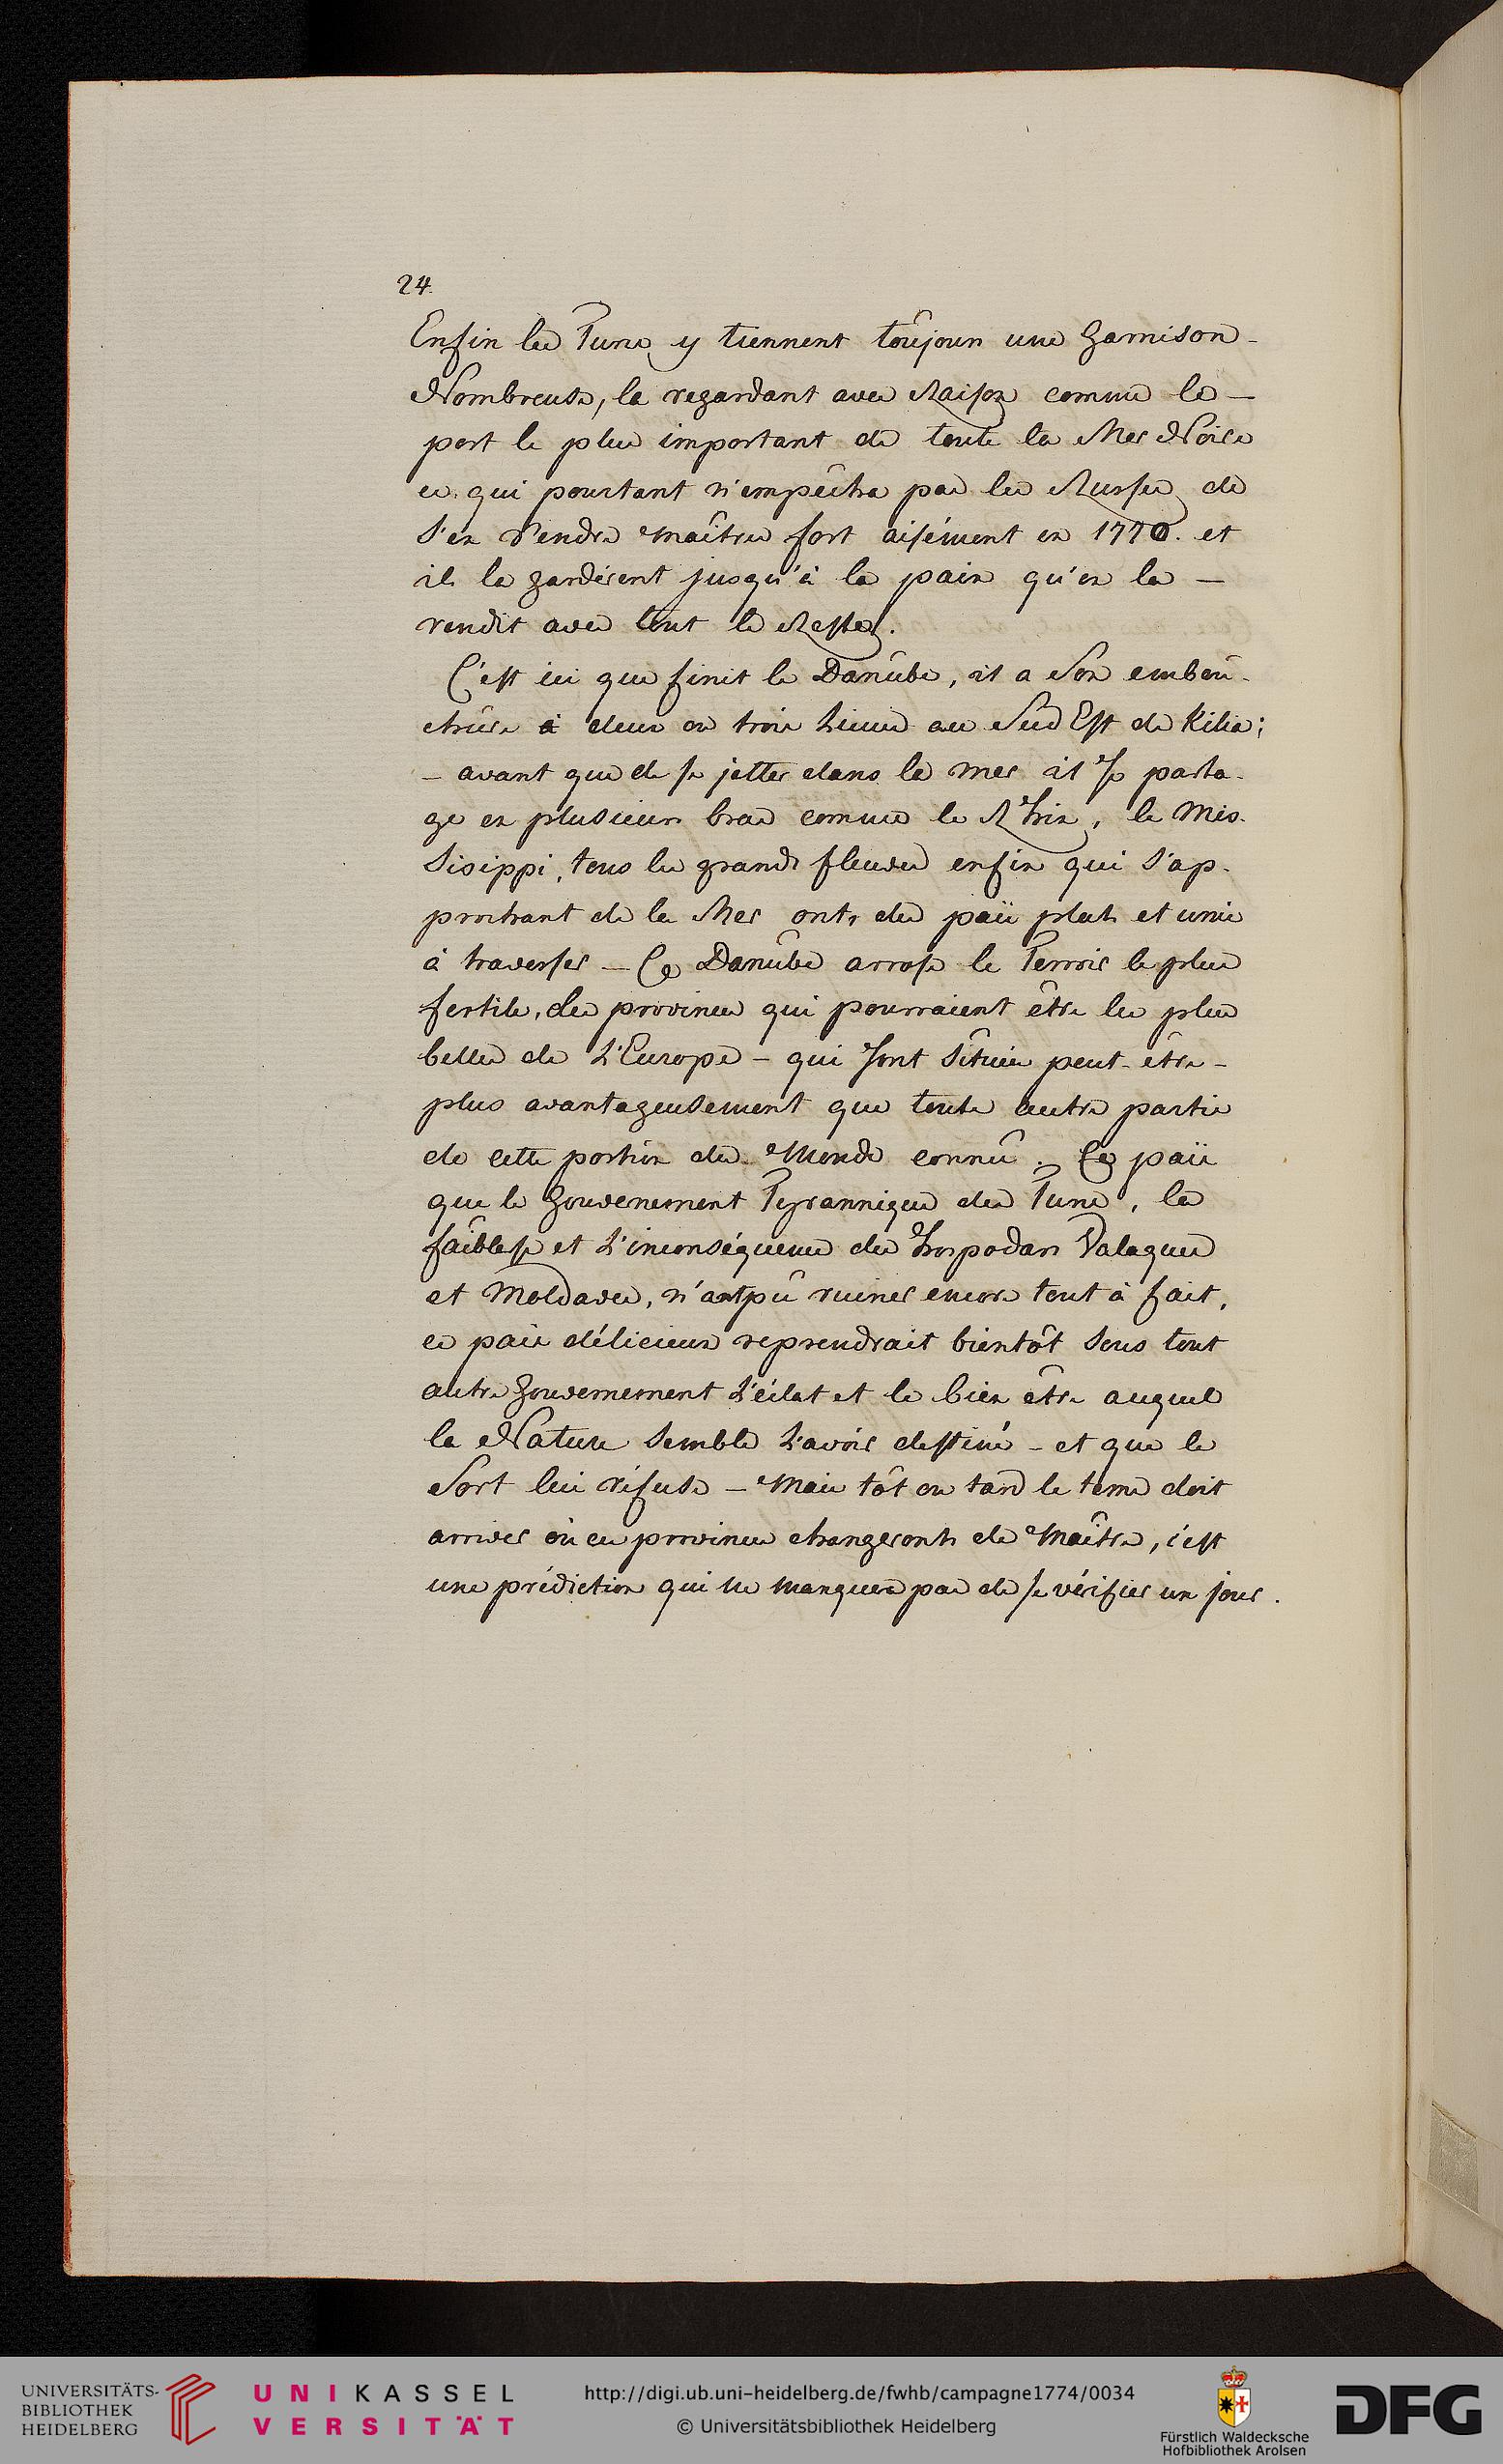 24.
Enfin les Turcs y tiennent toûjours une Garnison -
Nombreuse, la regardant avec Raison comme le -
port le plus important de toute la Mer Noire
ce qui pourtant n'empêcha pas les Russes de
s'en rendre maîtres fort aisément en 1770. et
ils la gardèrent jusqu'à la paix qu'on la -
rendit avec tout le Reste.
C'est ici que finit le Danube, il a son embou-
chure à deux ou trois Lieues au Sud Est de Kilia;
- avant que de se jetter dans la mer il se parta-
ge en plusieurs bras comme le Rhin, le Mis-
sisippi, tous les grands fleuves enfin qui s'ap-
prochant de la Mer ont, des païs plats et unis
à traverser - Ce Danube arrose le Terroir le plus
fertile, des provinces qui pourraient être les plus
belles de L'Europe - qui sont situées peut-être -
plus avantageusement que toute autre partie
de cette portion du Monde connû. Ce païs
que le Gouvernement Tyrannique des Turcs, la
faiblesse et L'inconséquence des Hospodars Valaques
et Moldaves, n'ont pû ruiner encore tout à fait,
ce païs délicieux reprendrait bientôt sous tout
autre Gouvernement L'éclat et le bien être auquel
la Nature semble L'avoir destiné - et que le
Sort lui réfuse - Mais tôt ou tard le tems doit
arriver où ces provinces changeront de Maître, c'est
une prédiction qui ne manquera pas de se vérifier un jour.
UNIVERSITÄTS-
BIBLIOTHEK
HEIDELBERG
UNIKASSEL
VERSITÄT
http://digi.ub.uni-heidelberg.de/fwhb/campagne1774/0034
© Universitätsbibliothek Heidelberg
Fürstlich Waldecksche
Hofbibliothek Arolsen
DFG